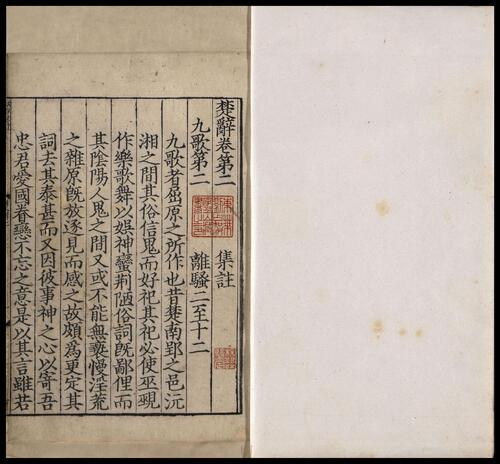 楚辭卷第二 集註
九歌第二 離騷二至十二
九歌者屈原之所作也昔楚南郢之邑沅
湘之間其俗信鬼而好祀其祀必使巫覡
作樂歌舞以娛神蠻荆陋俗詞旣鄙俚而
其陰陽人鬼之間又或不能無褻慢淫荒
之雜原旣放逐見而感之故頗爲更定其
詞去其泰甚而又因彼事神之心以寄吾
忠君愛國眷戀不忘之意是以其言雖若